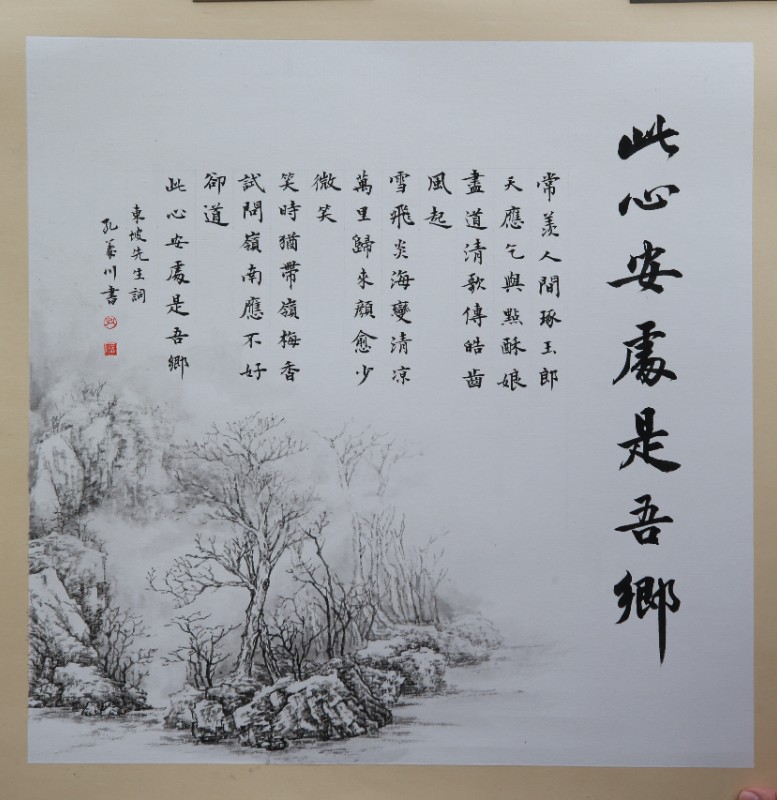 此心安處是吾鄉
常羨人間琢玉郎
天應乞與點酥娘
盡道清歌傳皓齒
風起
雪飛炎海變清涼
萬里歸來顏愈少
微笑
笑時猶帶嶺梅香
試問嶺南應不好
卻道
此心安處是吾鄉
東坡先生詞
孔□川書